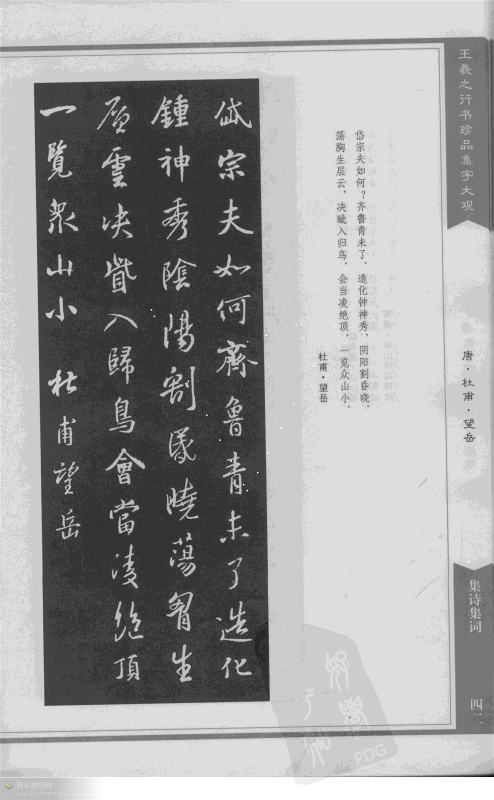 王羲之行书珍品集字大观
唐·杜甫·望岳
集诗集词
岱宗夫如何？齐鲁青未了。造化钟神秀，阴阳割昏晓。
荡胸生层云，决眦入归鸟。会当凌绝顶，一览众山小。
杜甫·望岳
岱宗夫如何齊魯青未了造化
鍾神秀陰陽割昏曉蕩胸生
層雲决眥入歸鳥會當凌絶頂
一覽衆山小 杜甫望岳
PDG